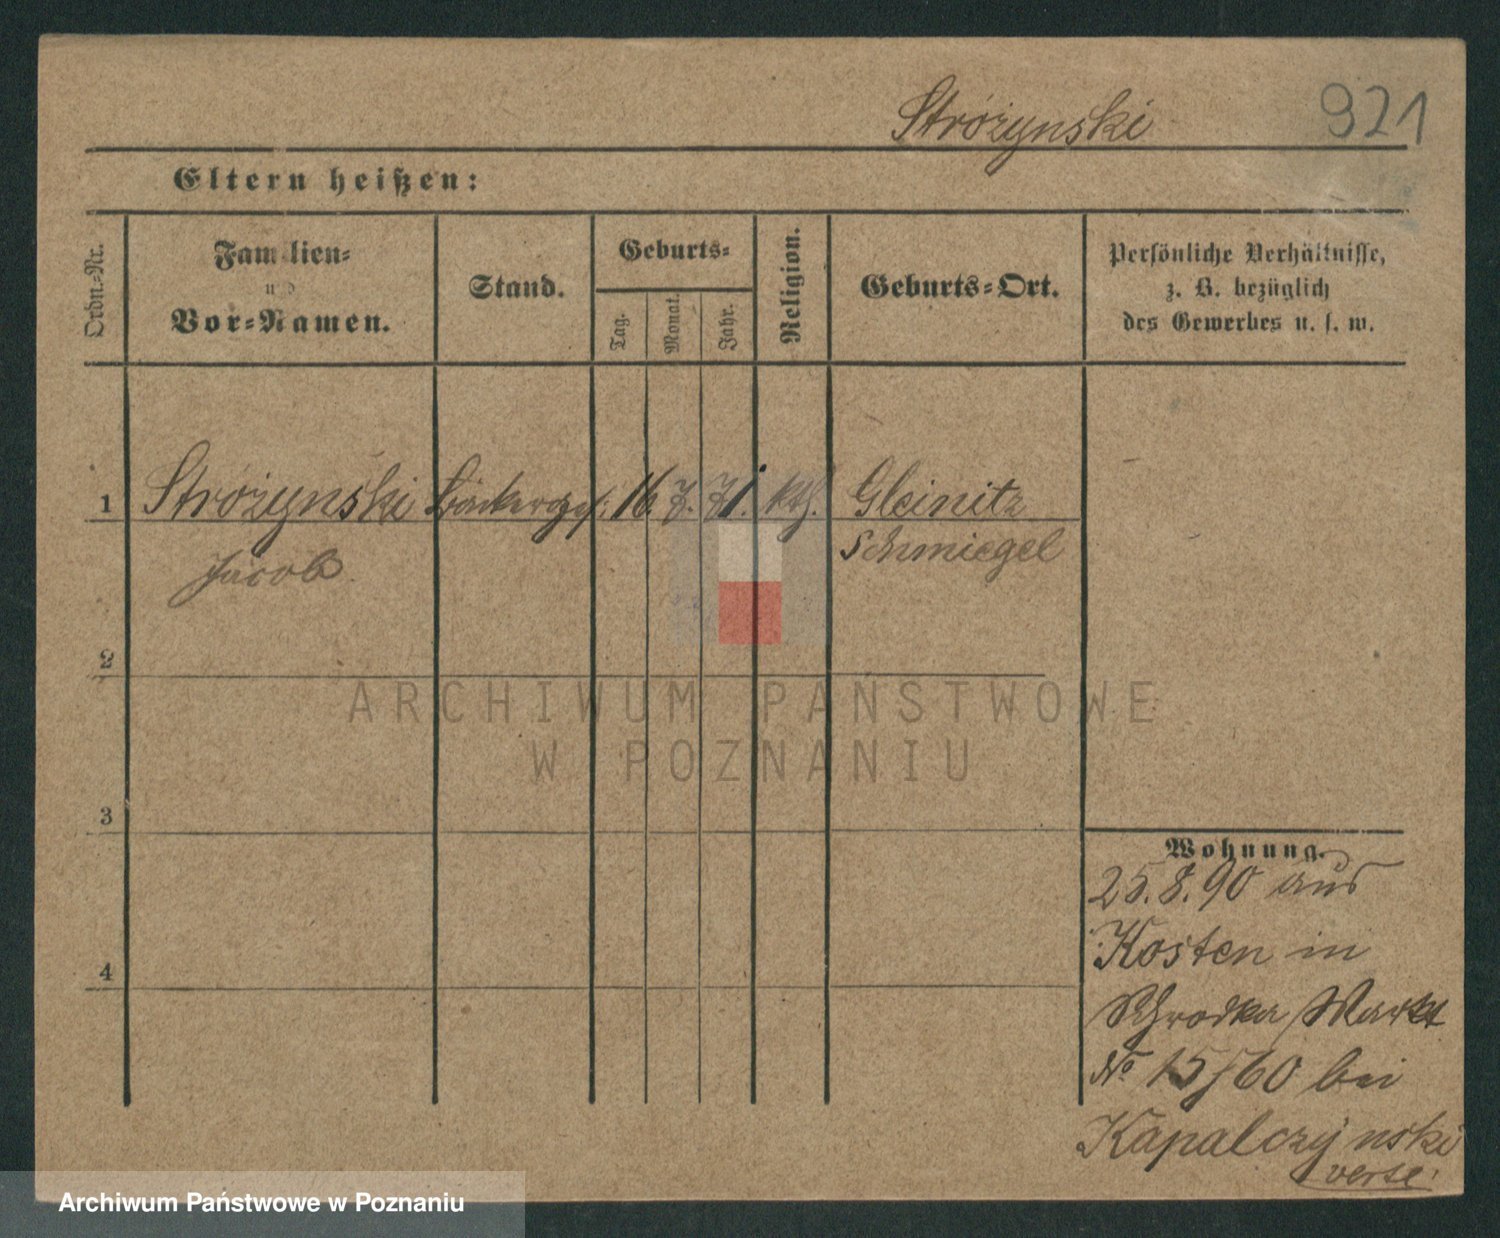 Strożynski 921
Eltern heißen:
Ordn.-Nr.
Familien-
und
Vor-Namen.
Stand.
Geburts-
Tag.
Monat.
Jahr.
Religion.
Geburts-Ort.
Persönliche Verhältnisse,
z. B. bezüglich
des Gewerbes u. s. w.
1 Strożynski Bäckerges: 16. 7. 71. kth. Gleinitz
Jacob Schmiegel
2
3
4
Wohnung.
25.8.90 aus
Kosten in
Schrodka Markt
No 15/60 bei
Kapalczynski
verte!
ARCHIWUM PAŃSTWOWE
W POZNANIU
Archiwum Państwowe w Poznaniu